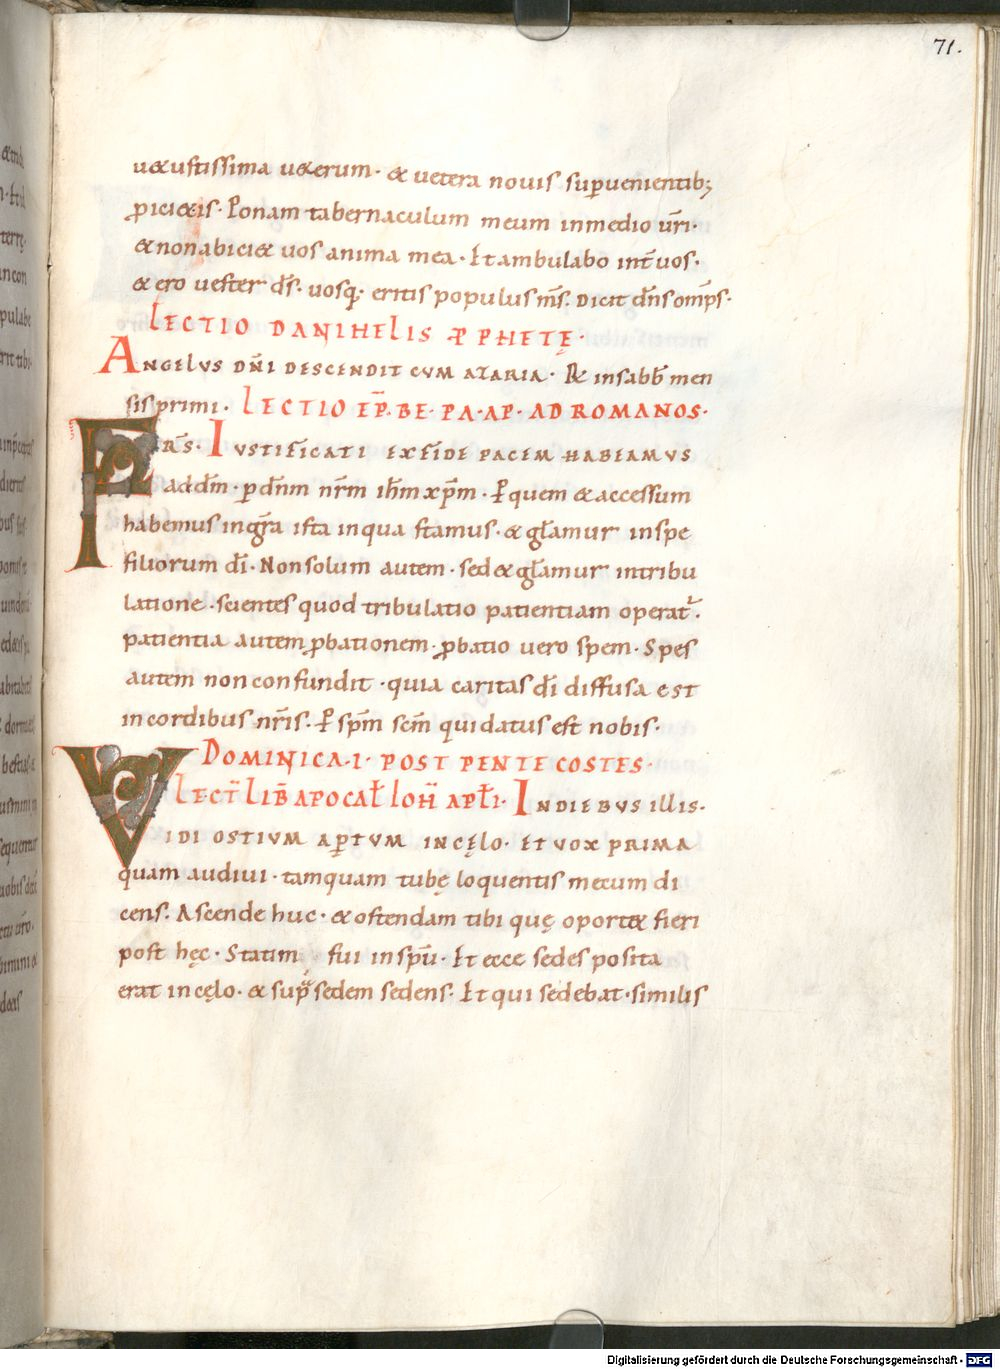 71.
uetustissima ueterum · et uetera nouis sup̱uenientib;
p̱icietis · Ponam tabernaculum meum inmedio ur̄i ·
et nonabiciet uos anima mea · Et ambulabo int̄ uos ·
et ero uester d̄s · uosq; eritis populus m̄s · Dicit dn̄s omp̄s ·
LECTIO DANIHELIS PPHETĘ ·
ANGELVS DN̄I DESCENDIT CVM AZARIA · R et insabb̄ men
sisprimi · LECTIO EP̄ · BE · PA · AP · AD ROMANOS ·
FRS̄ · IVSTIFICATI EXFIDE PACEM HABEAMVS
addm̄ · p̱ dn̄m nr̄m ih̄m xp̄m · P̱quem et accessum
habemus ingr̄a ista inqua stamus · et gl̄amur inspe
filiorum dī · Nonsolum autem · sed et gl̄amur intribu
latione · scientes quod tribulatio patientiam operat᷑ ·
patientia autem p̱bationem · p̱batio uero spem · Spes
autem nonconfundit · quia caritas dī diffusa est
incordibus nr̄is · P̱ sp̄m sc̄m quidatus est nobis ·
DOMINICA · I · POST PENTECOSTES ·
LECT̄ LIB̄ APOCAL̄ IOH̄ APL̄I · INDIEBVS illis ·
VIDI OSTIVM AP̱TVM INCĘLO · ET VOX PRIMA
quam audiui · tamquam tubę loquentis mecum di
cens · Ascende huc · et ostendam tibi quę oportet fieri
post hęc · Statim fui inspū · Et ecce sedes posita
erat incęlo · et sup̱ sedem sedens · Et qui sedebat · similis
Digitalisierung gefördert durch die Deutsche Forschungsgemeinschaft - DFG